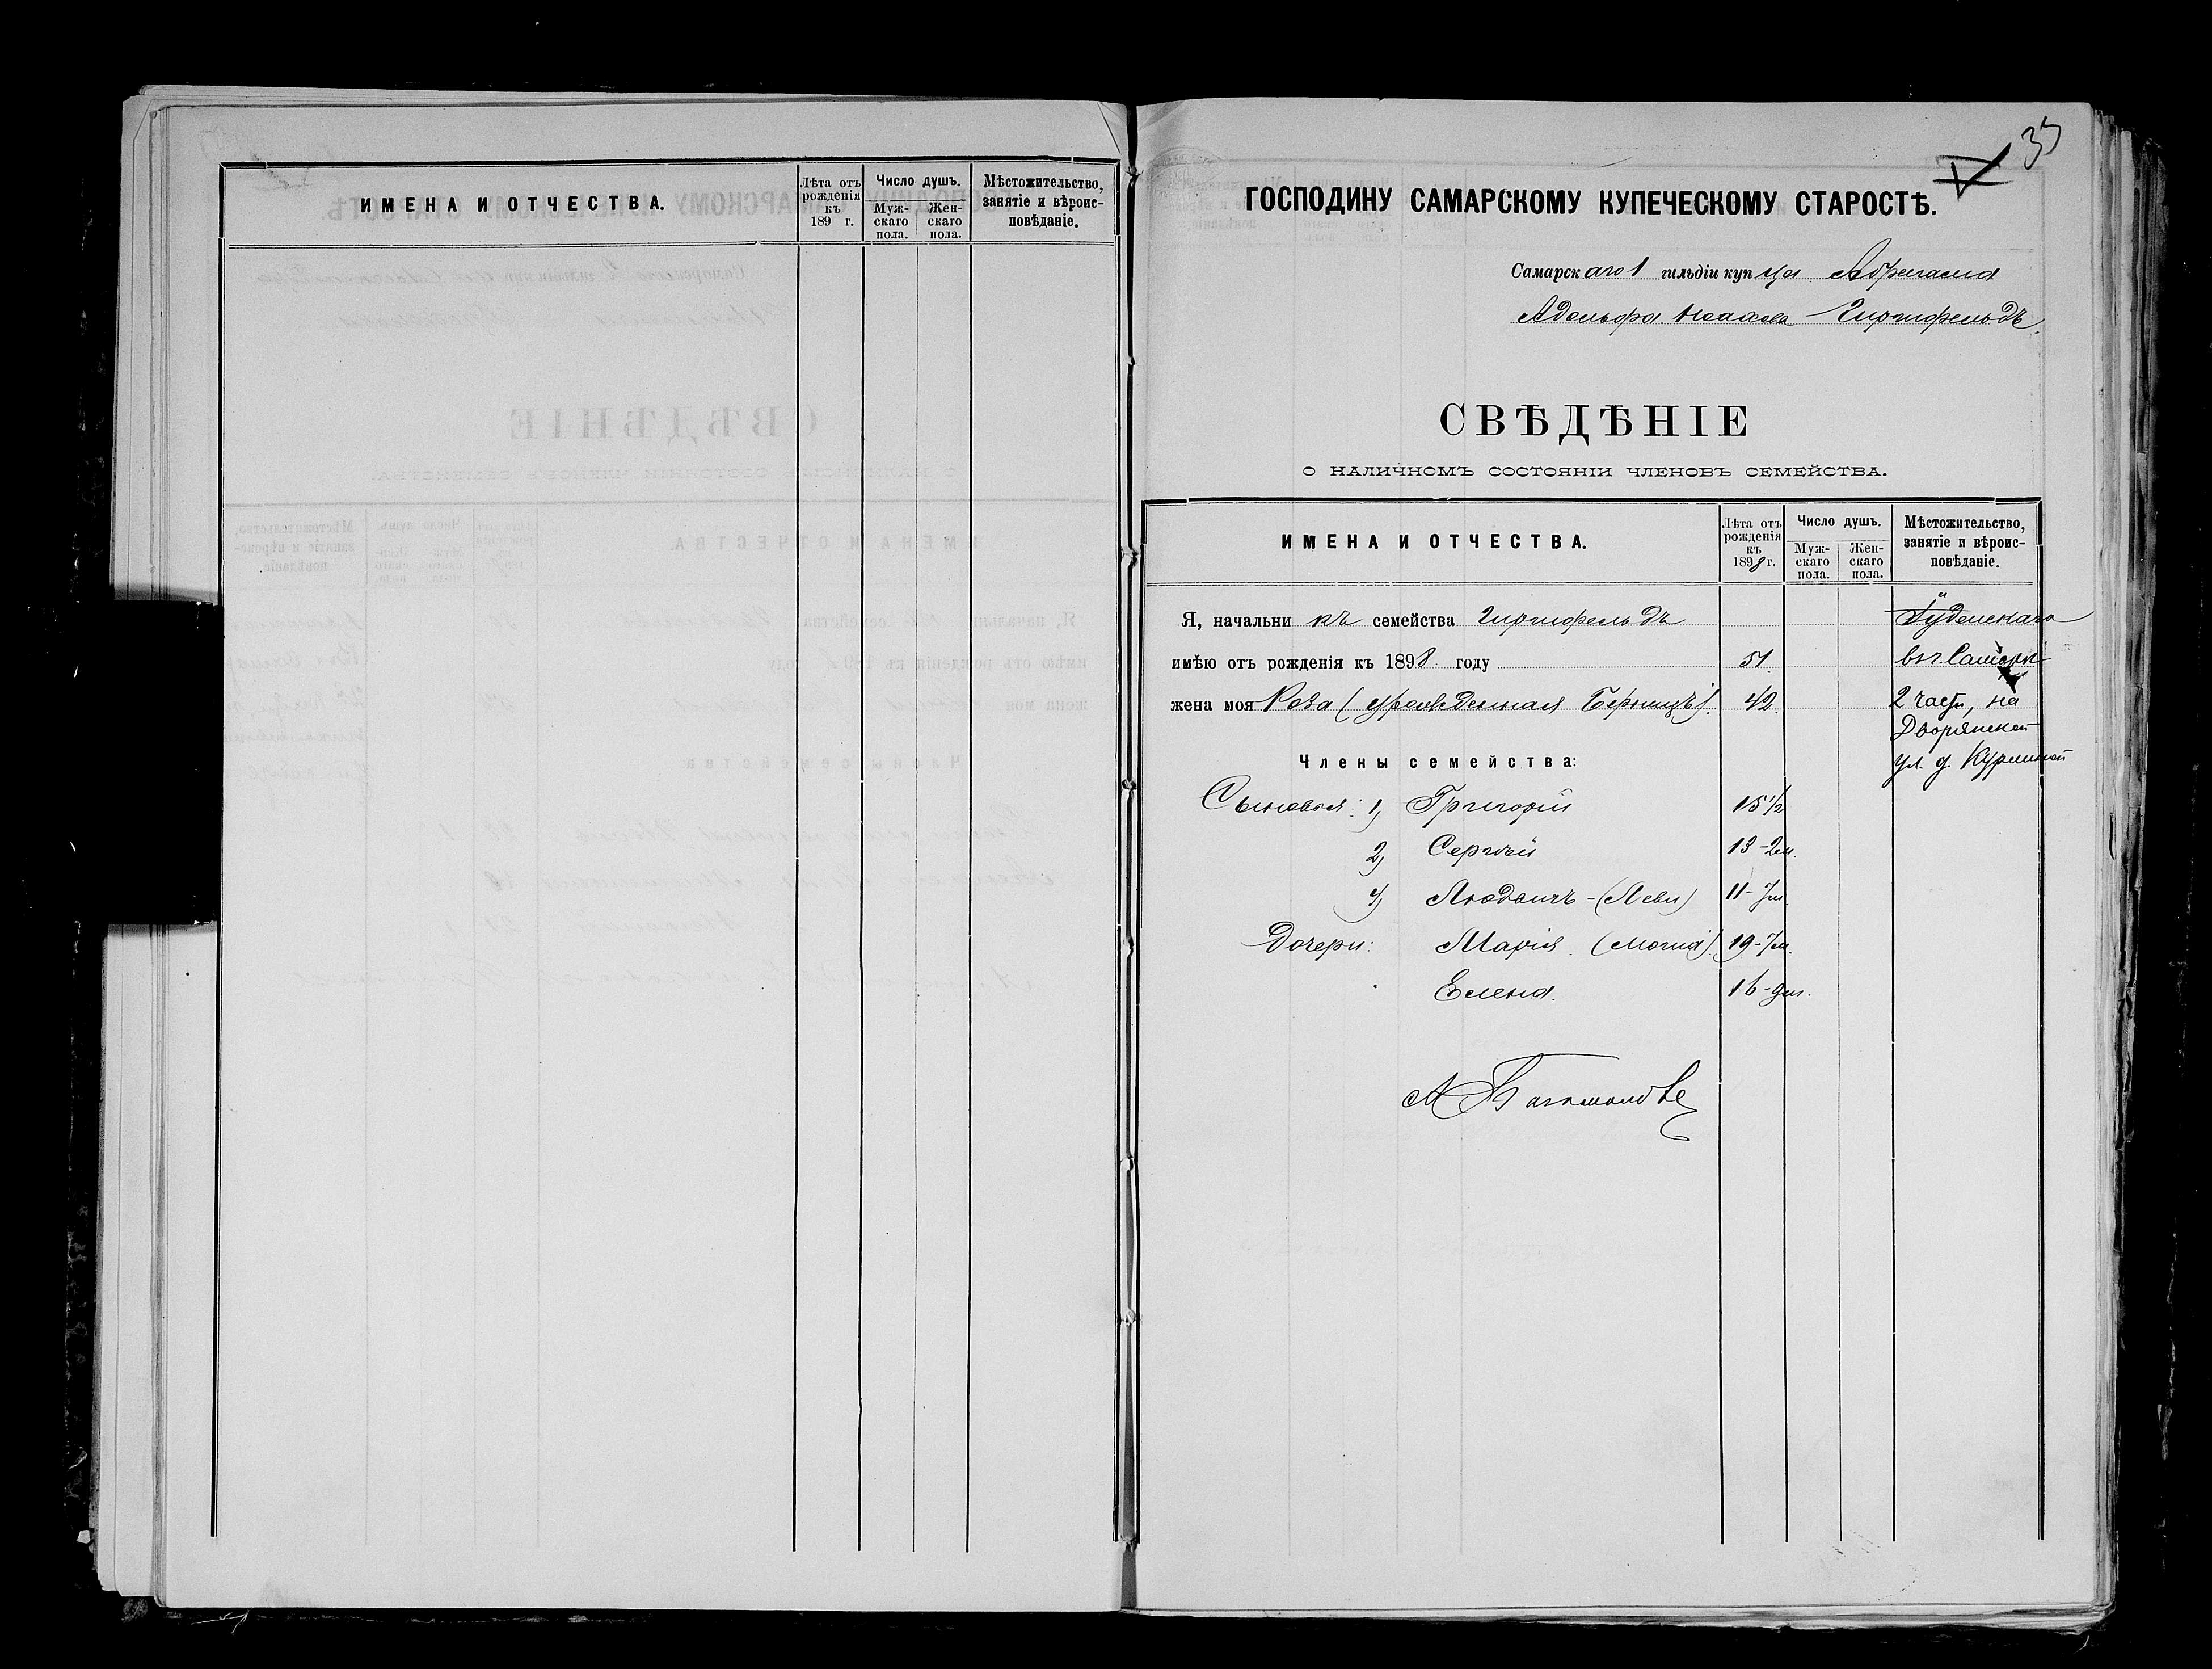 ИМЕНА И ОТЧЕСТВА.
Лѣта отъ рожденія къ 189 г.
Число душъ.
Мужскаго пола.
Женскаго пола.
Мѣстожительство, занятіе и вѣроисповѣданіе.
35
ГОСПОДИНУ САМАРСКОМУ КУПЕЧЕСКОМУ СТАРОСТѢ.
Самарскаго 1 гильдіи купца Абрагама
Адольфа Исаакова Гиршфельдъ.
СВѢДѢНІЕ
О НАЛИЧНОМЪ СОСТОЯНІИ ЧЛЕНОВЪ СЕМЕЙСТВА.
ИМЕНА И ОТЧЕСТВА.
Лѣта отъ рожденія къ 1898 г.
Число душъ.
Мужскаго пола.
Женскаго пола.
Мѣстожительство, занятіе и вѣроисповѣданіе.
Я, начальникъ семейства Гиршфельдъ Іудейскаго
имѣю отъ рожденія къ 1898 году 51 въ г. Самарѣ
жена моя Роза (урожденная 42 2 части, на
Дворянской
ул. д. Курлиной
Члены семейства:
Сыновья: 1) Григорій 15 1/2
2) Сергѣй 13-2м.
Людвигъ - (Леви) 11-7м.
Дочери: Марія. 19-7м.
Елена. 16-9м.